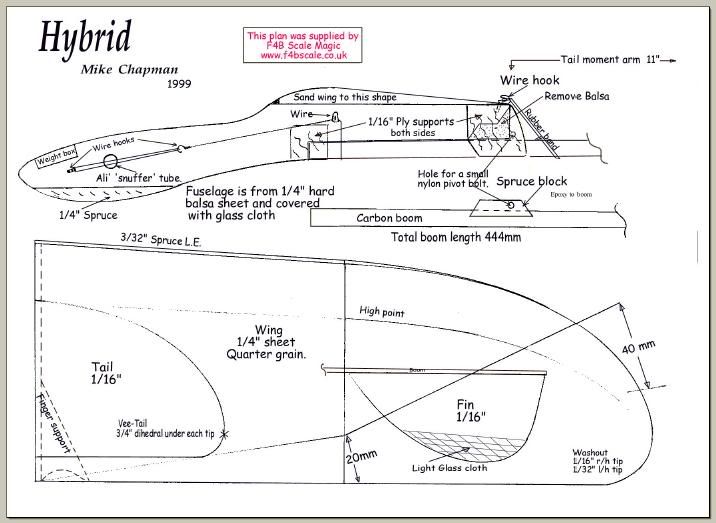 Hybrid
Mike Chapman
1999
This plan was supplied by
F4B Scale Magic
www.f4bscale.co.uk
Tail moment arm 11"
Wire hook
Sand wing to this shape
Remove Balsa
Wire
1/16" Ply supports
both sides
Rubber band
Weight box
Wire hooks
Ali' 'snuffer' tube.
Hole for a small
nylon pivot bolt.
Spruce block
Epoxy to boom
1/4" Spruce
Fuselage is from 1/4" hard
balsa sheet and covered
with glass cloth
Carbon boom
Total boom length 444mm
3/32" Spruce L.E.
High point
Wing
1/4" sheet
Quarter grain.
40 mm
Tail
1/16"
Boom
Fin
1/16"
Finger support
Vee-Tail
3/4" dihedral under each tip
20mm
Light Glass cloth
Washout
1/16" r/h tip
1/32" l/h tip